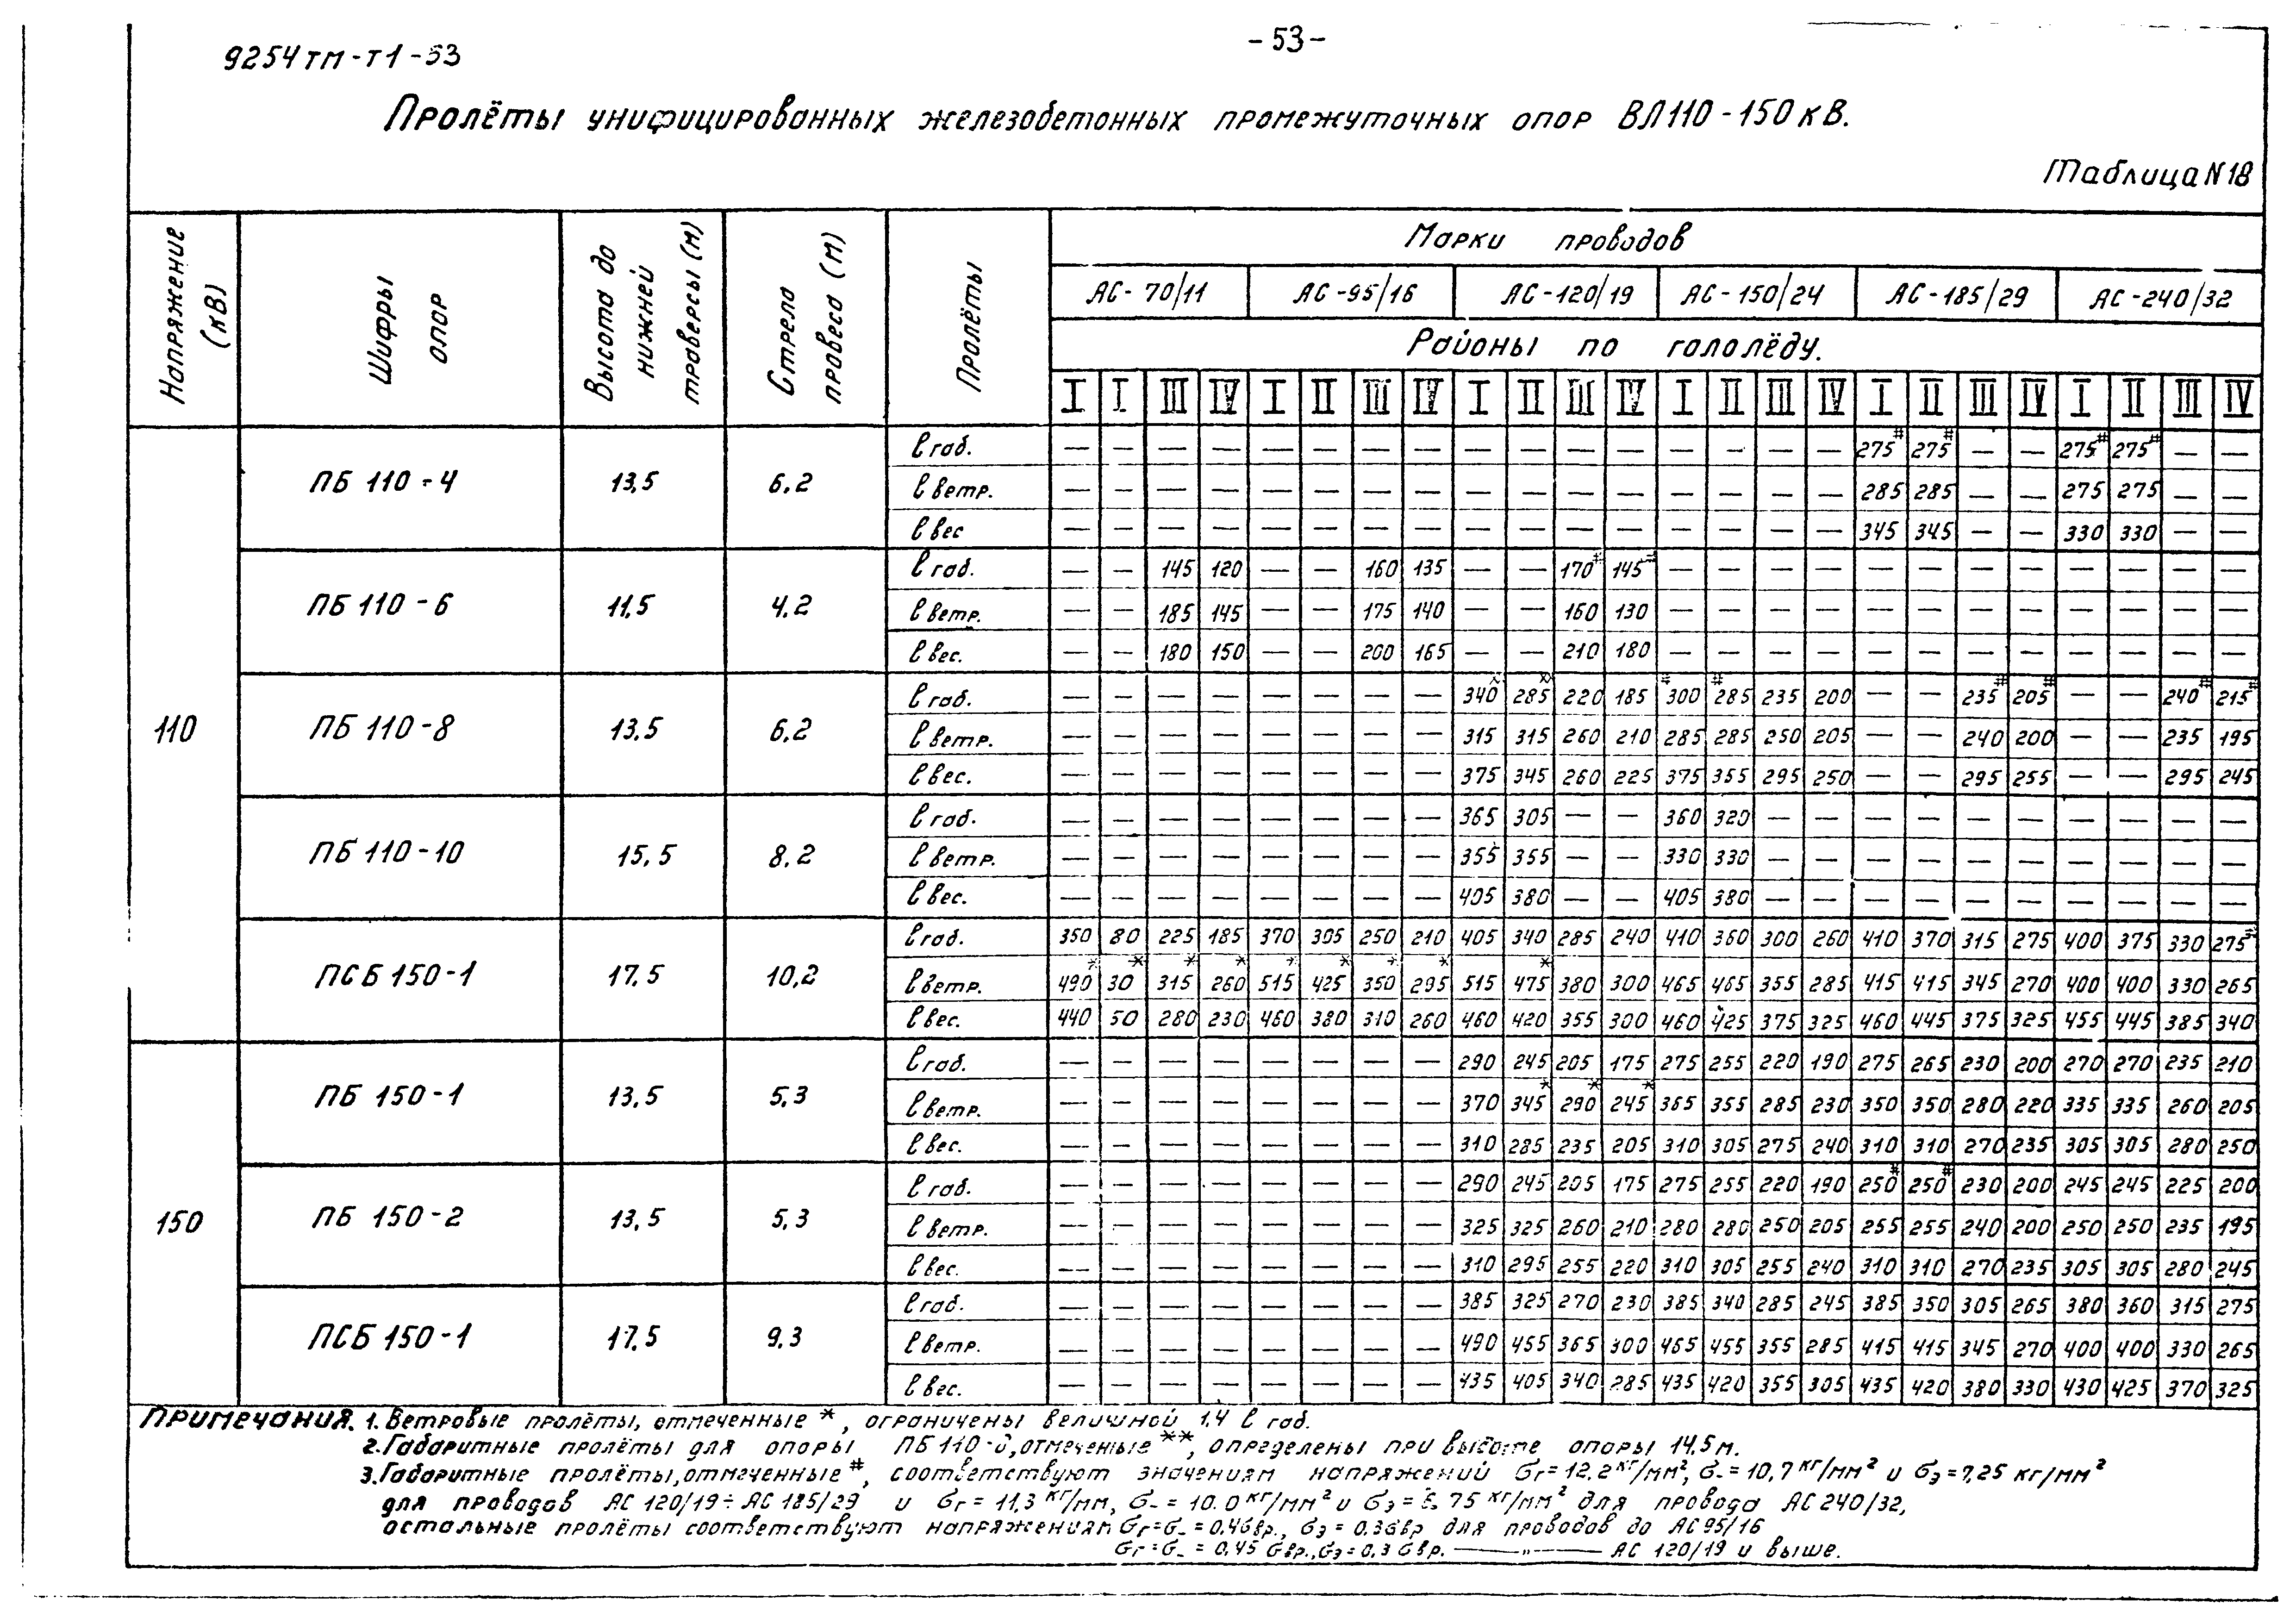 9254тм-т1-53
-53-
Пролёты унифицированных железобетонных промежуточных опор ВЛ110-150кВ.
Таблица N18
Напряжение (кВ)
Шифры опор
Высота до нижней траверсы (м)
Стрела провеса (м)
Пролёты
Марки проводов
АС-70/11 АС-95/16 АС-120/19 АС-150/24 АС-185/29 АС-240/32
Районы по гололёду.
I I III IV I II III IV I II III IV I II III IV I II III IV I II III IV
110
ПБ 110-4 13,5 6,2
l габ. — — — — — — — — — — — — — — — — 275# 275# — — 275# 275# — —
l ветр. — — — — — — — — — — — — — — — — 285 285 — — 275 275 — —
l вес — — — — — — — — — — — — — — — — 345 345 — — 330 330 — —
ПБ 110-6 11,5 4,2
l габ. — — 145 120 — — 160 135 — — 170# 145 — — — — — — — — — — — —
l ветр. — — 185 145 — — 175 140 — — 160 130 — — — — — — — — — — — —
l вес. — — 180 150 — — 200 165 — — 210 180 — — — — — — — — — — — —
ПБ 110-8 13,5 6,2
l габ. — — — — — — — — 340 285** 220 185 #300 #285 235 200 — — 235# 205# — — 240# 215#
l ветр. — — — — — — — — 315 315 260 210 285 285 250 205 — — 240 200 — — 235 195
l вес. — — — — — — — — 375 345 260 225 375 355 295 250 — — 295 255 — — 295 245
ПБ 110-10 15,5 8,2
l габ. — — — — — — — — 365 305 — — 360 320 — — — — — — — — — —
l ветр. — — — — — — — — 355 355 — — 330 330 — — — — — — — — — —
l вес. — — — — — — — — 405 380 — — 405 380 — — — — — — — — — —
ПСБ 150-1 17,5 10,2
l габ. 350 80 225 185 370 305 250 210 405 340 285 240 410 360 300 260 410 370 315 275 400 375 330 275#
l ветр. 490* 30* 315* 260* 515* 425* 350* 295* 515 475* 380 300 465 465 355 285 415 415 345 270 400 400 330 265
l вес. 440 50 280 230 460 380 310 260 460 420 355 300 460 425 375 325 460 445 375 325 455 445 385 340
150
ПБ 150-1 13,5 5,3
l габ. — — — — — — — — 290 245 205 175 275 255 220 190 275 265 230 200 270 270 235 210
l ветр. — — — — — — — — 370 345* 290* 245* 365 355 285 230 350 350 280 220 335 335 260 205
l вес. — — — — — — — — 310 285 235 205 310 305 275 240 310 310 270 235 305 305 280 250
ПБ 150-2 13,5 5,3
l габ. — — — — — — — — 290 245 205 175 275 255 220 190 250# 250# 230 200 245 245 225 200
l ветр. — — — — — — — — 325 325 260 210 280 280 250 205 255 255 240 200 250 250 235 195
l вес. — — — — — — — — 310 295 255 220 310 305 255 240 310 310 270 235 305 305 280 245
ПСБ 150-1 17,5 9,3
l габ. — — — — — — — — 385 325 270 230 385 340 285 245 385 350 305 265 380 360 315 275
l ветр. — — — — — — — — 490 455 365 300 465 455 355 285 415 415 345 270 400 400 330 265
l вес. — — — — — — — — 435 405 340 285 435 420 355 305 435 420 380 330 430 425 370 325
Примечания. 1. Ветровые пролёты, отмеченные *, ограничены величиной 1,4 l габ.
2. Габаритные пролёты для опоры ПБ 110-8, отмеченные **, определены при высоте опоры 14.5м.
3. Габаритные пролёты, отмеченные #, соответствуют значениям напряжений σг=12,2кг/мм², σ-=10,7кг/мм² и σэ=7,25 кг/мм²
для проводов АС 120/19÷АС 185/29 и σг=11,3 кг/мм, σ-=10.0кг/мм² и σэ=6,75 кг/мм² для провода АС 240/32,
остальные пролёты соответствуют напряжениям σг=σ-=0,4σвр., σэ=0,3σвр для проводов до АС95/16
σг=σ-=0,45 σвр., σэ=0,3 σвр. —„— АС 120/19 и выше.